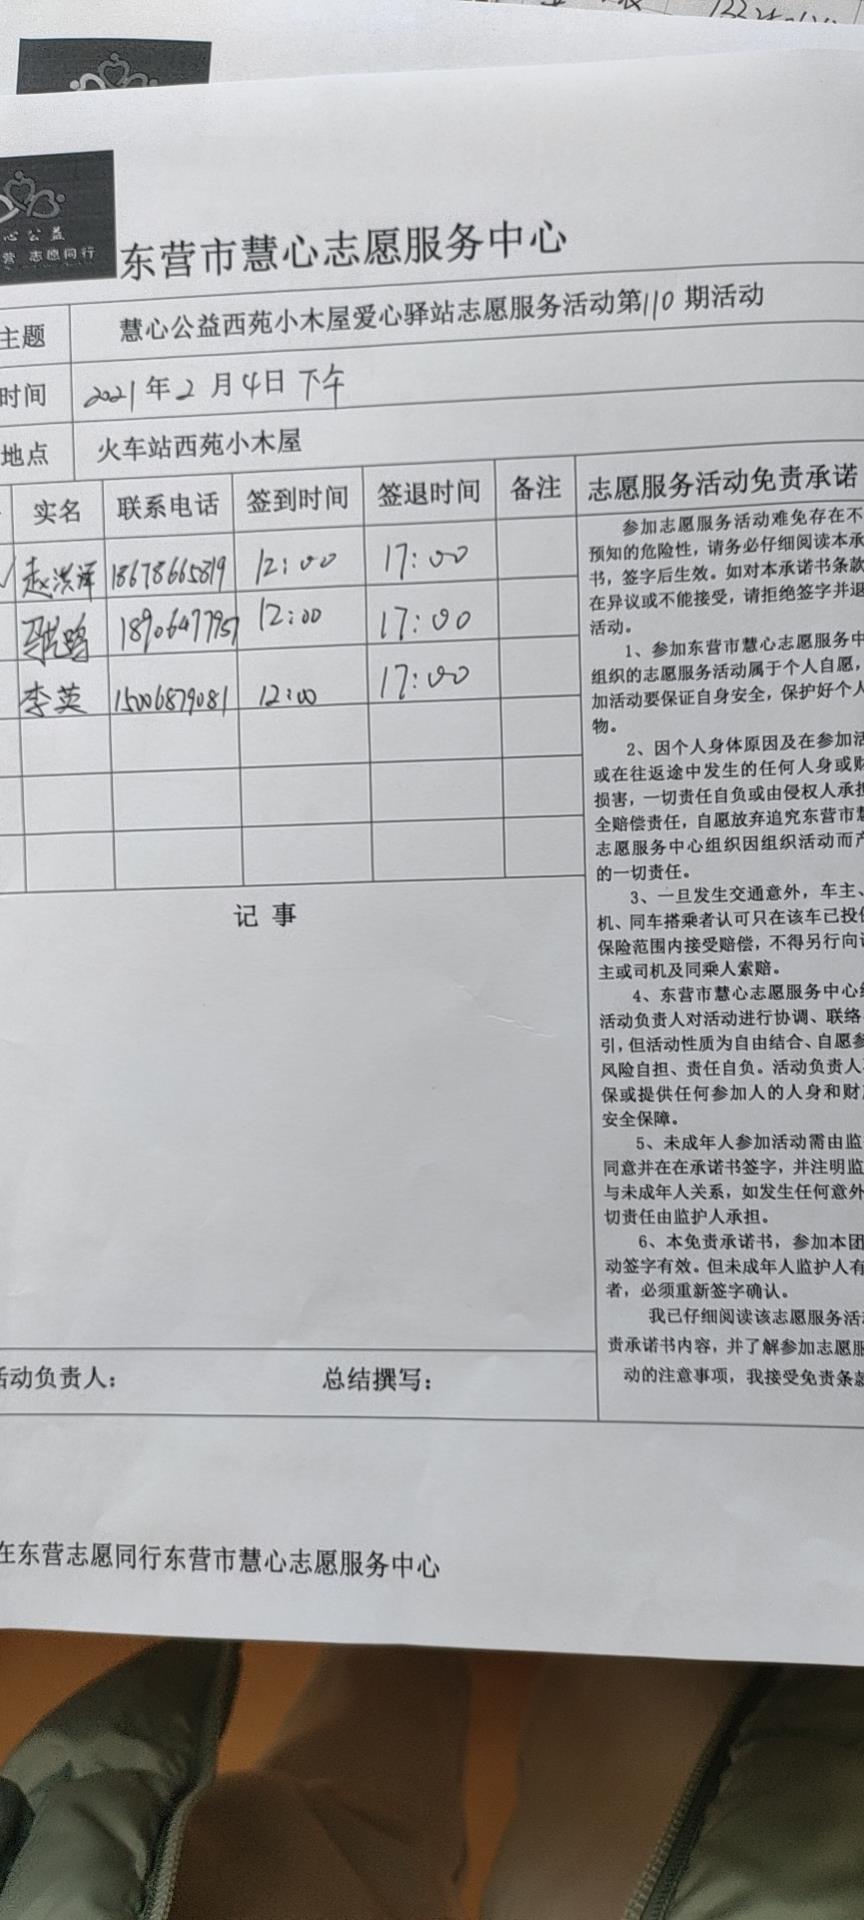 心公益
营 志愿同行
东营市慧心志愿服务中心
主题 慧心公益西苑小木屋爱心驿站志愿服务活动第110期活动
时间 2021年2月4日下午
地点 火车站西苑小木屋
实名 联系电话 签到时间 签退时间 备注
赵洪泽 18678665819 12:00 17:00
1890647795 12:00 17:00
李英 15006879081 12:00 17:00
记事
活动负责人： 总结撰写：
志愿服务活动免责承诺
参加志愿服务活动难免存在不
预知的危险性，请务必仔细阅读本承
书，签字后生效。如对本承诺书条款
在异议或不能接受，请拒绝签字并退
活动。
1、参加东营市慧心志愿服务中
组织的志愿服务活动属于个人自愿，
加活动要保证自身安全，保护好个人
物。
2、因个人身体原因及在参加活
或在往返途中发生的任何人身或财
损害，一切责任自负或由侵权人承担
全赔偿责任，自愿放弃追究东营市慧
志愿服务中心组织因组织活动而产
的一切责任。
3、一旦发生交通意外，车主、
机、同车搭乘者认可只在该车已投保
保险范围内接受赔偿，不得另行向
主或司机及同乘人索赔。
4、东营市慧心志愿服务中心组
活动负责人对活动进行协调、联络
引，但活动性质为自由结合、自愿参
风险自担、责任自负。活动负责人
保或提供任何参加人的人身和财
安全保障。
5、未成年人参加活动需由监
同意并在在承诺书签字，并注明监
与未成年人关系，如发生任何意外
切责任由监护人承担。
6、本免责承诺书，参加本团
动签字有效。但未成年人监护人有
者，必须重新签字确认。
我已仔细阅读该志愿服务活动
责承诺书内容，并了解参加志愿服
动的注意事项，我接受免责条款
在东营志愿同行东营市慧心志愿服务中心